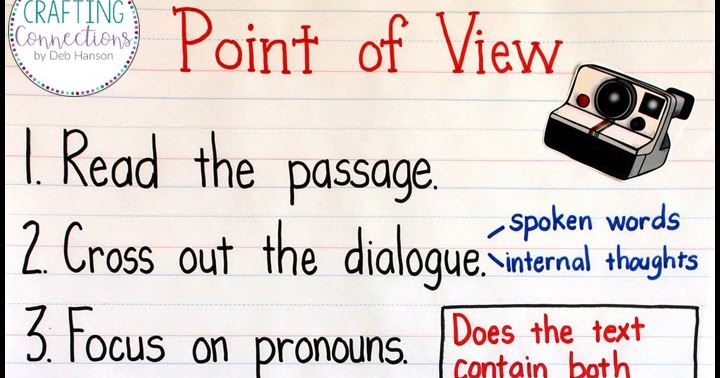 CRAFTING
Connections
by Deb Hanson
Point of View
1. Read the passage.
2. Cross out the dialogue.
spoken words
internal thoughts
3. Focus on pronouns.
Does the text
contain both